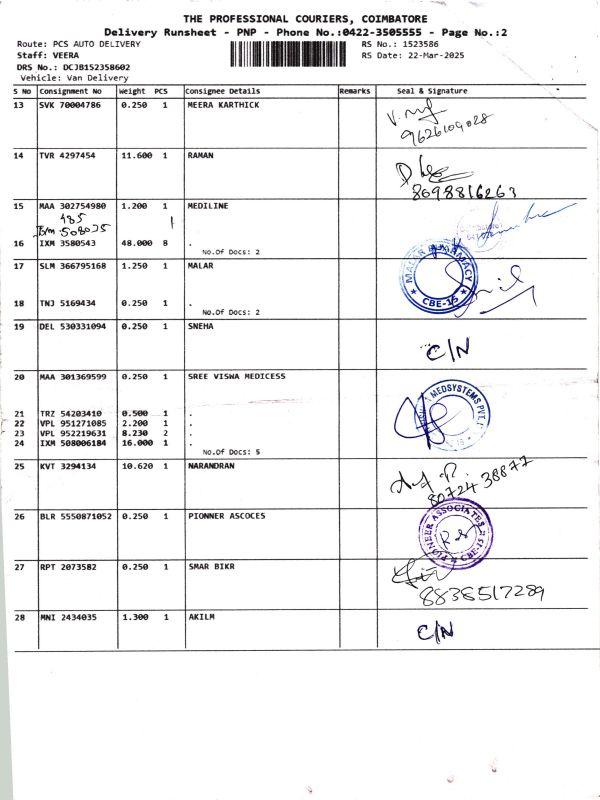 THE PROFESSIONAL COURIERS, COIMBATORE
Delivery Runsheet - PNP - Phone No.:0422-3505555 - Page No.:2
Route: PCS AUTO DELIVERY RS No.: 1523586
Staff: VEERA RS Date: 22-Mar-2025
DRS No.: DCJB152358602
Vehicle: Van Delivery
S No Consignment No Weight PCS Consignee Details Remarks Seal & Signature
13 SVK 70004786 0.250 1 MEERA KARTHICK
9626109028
14 TVR 4297454 11.600 1 RAMAN
8098816263
15 MAA 302754980 1.200 1 MEDILINE
485
508035 1
16 IXM 3580543 48.000 8 .
No.Of Docs: 2
17 SLM 366795168 1.250 1 MALAR
MALAR PHARMACY
CBE-15
18 TNJ 5169434 0.250 1 .
No.Of Docs: 2
19 DEL 530331094 0.250 1 SNEHA
C/N
20 MAA 301369599 0.250 1 SREE VISWA MEDICESS
MEDSYSTEMS PVT.
21 TRZ 54203410 0.500 1 .
22 VPL 951271085 2.200 1 .
23 VPL 952219631 8.230 2 .
24 IXM 508006184 16.000 1 .
No.Of Docs: 5
25 KVT 3294134 10.620 1 NARANDRAN
80724 38877
26 BLR 5550871052 0.250 1 PIONNER ASCOCES
PIONEER ASSOCIATES
CBE-15
27 RPT 2073582 0.250 1 SMAR BIKR
8838517289
28 MNI 2434035 1.300 1 AKILM
C/N